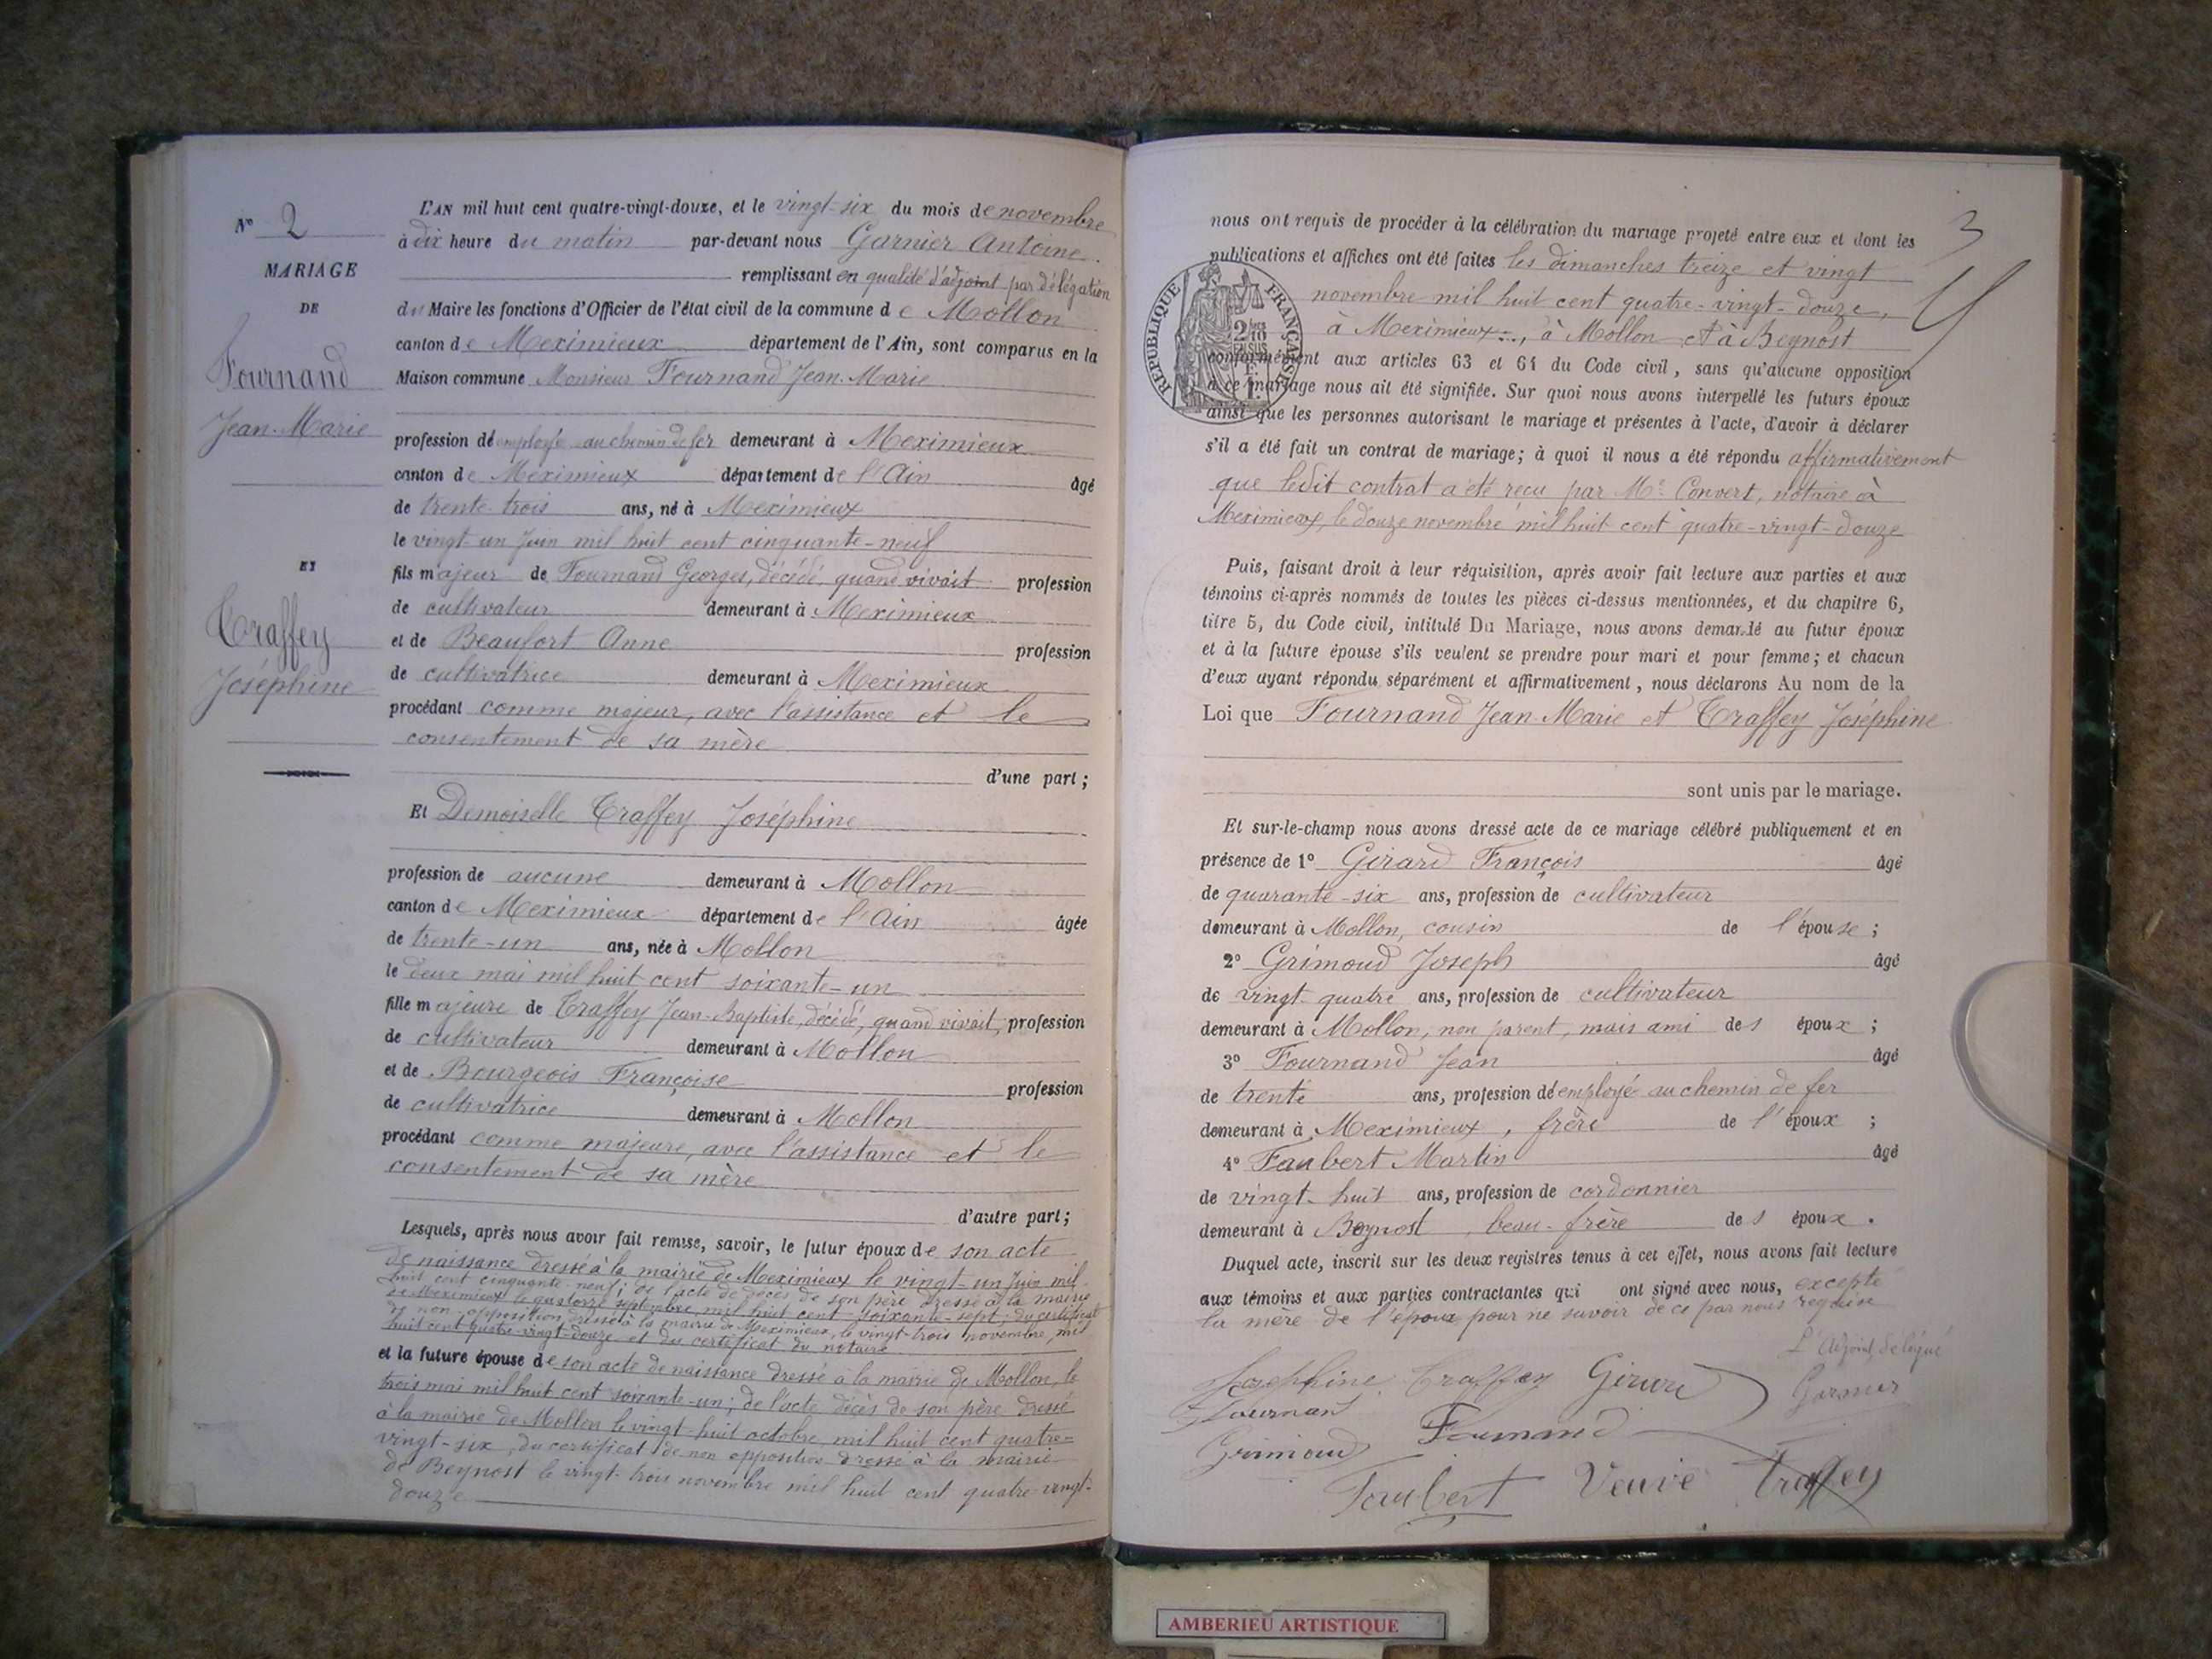 N° 2
MARIAGE
DE
Fournand
Jean-Marie
ET
Traffey
Joséphine
L'AN mil huit cent quatre-vingt-douze, et le vingt-six du mois de novembre
à dix heure du matin par-devant nous Garnier Antoine
remplissant en qualité d'adjoint par délégation
du Maire les fonctions d'Officier de l'état civil de la commune de Mollon
canton de Meximieux département de l'Ain, sont comparus en la
Maison commune Monsieur Fournand Jean-Marie
profession d'employé au chemin de fer demeurant à Meximieux
canton de Meximieux département de l'Ain âgé
de trente-trois ans, né à Meximieux
le vingt-un Juin mil huit cent cinquante-neuf
fils majeur de Fournand Georges, décédé, quand vivait profession
de cultivateur demeurant à Meximieux
et de Beaufort Anne profession
de cultivatrice demeurant à Meximieux
procédant comme majeur, avec l'assistance et le
consentement de sa mère
d'une part;
Et Demoiselle Traffey Joséphine
profession de aucune demeurant à Mollon
canton de Meximieux département de l'Ain âgée
de trente-un ans, née à Mollon
le deux mai mil huit cent soixante-un
fille majeure de Traffey Jean-Baptiste, décédé, quand vivait, profession
de cultivateur demeurant à Mollon
et de Bourgeois Françoise profession
de cultivatrice demeurant à Mollon
procédant comme majeure, avec l'assistance et le
consentement de sa mère
d'autre part;
Lesquels, après nous avoir fait remise, savoir, le futur époux de son acte
de naissance dressé à la mairie de Meximieux le vingt-un Juin mil
huit cent cinquante-neuf; de l'acte de décès de son père dressé à la mairie
de Meximieux le quatorze septembre mil huit cent soixante-sept; du certificat
de non-opposition dressé à la mairie de Meximieux, le vingt-trois novembre mil
huit cent quatre-vingt-douze et du certificat du notaire
et la future épouse de son acte de naissance dressé à la mairie de Mollon, le
trois mai mil huit cent soixante-un; de l'acte décès de son père dressé
à la mairie de Mollon le vingt-huit octobre mil huit cent quatre-
vingt-six, du certificat de non opposition dressé à la mairie
de Beynost le vingt-trois novembre mil huit cent quatre-vingt-
douze
3
nous ont requis de procéder à la célébration du mariage projeté entre eux et dont les
publications et affiches ont été faites les dimanches treize et vingt
novembre mil huit cent quatre-vingt-douze,
à Meximieux, à Mollon et à Beynost
conformément aux articles 63 et 64 du Code civil, sans qu'aucune opposition
à ce mariage nous ait été signifiée. Sur quoi nous avons interpellé les futurs époux
ainsi que les personnes autorisant le mariage et présentes à l'acte, d'avoir à déclarer
s'il a été fait un contrat de mariage; à quoi il nous a été répondu affirmativement
que ledit contrat a été reçu par Me Convert, notaire à
Meximieux, le douze novembre mil huit cent quatre-vingt-douze
RÉPUBLIQUE FRANÇAISE
2/10 EN SUS
Puis, faisant droit à leur réquisition, après avoir fait lecture aux parties et aux
témoins ci-après nommés de toutes les pièces ci-dessus mentionnées, et du chapitre 6,
titre 5, du Code civil, intitulé Du Mariage, nous avons demandé au futur époux
et à la future épouse s'ils veulent se prendre pour mari et pour femme; et chacun
d'eux ayant répondu séparément et affirmativement, nous déclarons Au nom de la
Loi que Fournand Jean-Marie et Traffey Joséphine
sont unis par le mariage.
Et sur-le-champ nous avons dressé acte de ce mariage célébré publiquement et en
présence de 1° Girard François âgé
de quarante-six ans, profession de cultivateur
demeurant à Mollon, cousin de l'épouse;
2° Grimoud Joseph âgé
de vingt-quatre ans, profession de cultivateur
demeurant à Mollon, non parent, mais ami des époux;
3° Fournand Jean âgé
de trente ans, profession d'employé au chemin de fer
demeurant à Meximieux, frère de l'époux;
4° Faubert Martin âgé
de vingt-huit ans, profession de cordonnier
demeurant à Beynost, beau-frère des époux.
Duquel acte, inscrit sur les deux registres tenus à cet effet, nous avons fait lecture
aux témoins et aux parties contractantes qui ont signé avec nous, excepté
la mère de l'époux pour ne savoir de ce par nous requise
L'Adjoint délégué
Josephine Traffey Girard Garnier
Fournand Fournand
Grimoud
Faubert Veuve Traffey
AMBERIEU ARTISTIQUE